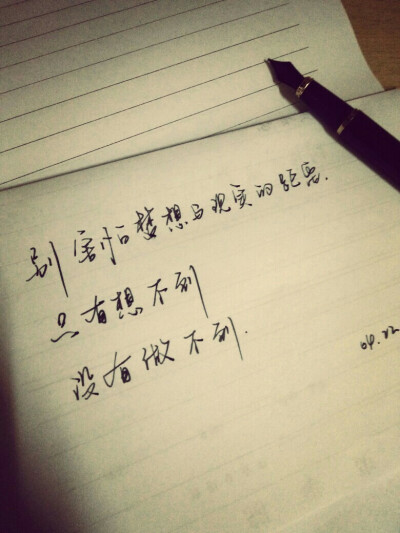 别害怕梦想与现实的距离.
只有想不到
没有做不到.
04.22